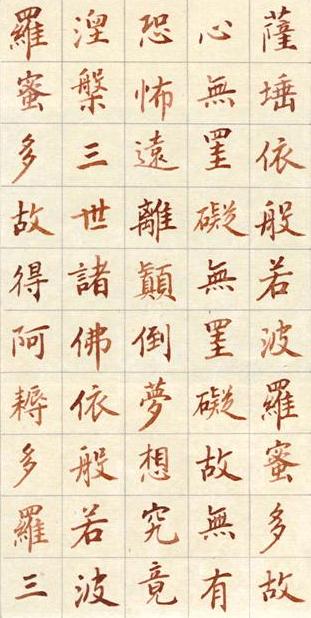 薩埵依般若波羅蜜多故
心無罣礙無罣礙故無有
恐怖遠離顛倒夢想究竟
涅槃三世諸佛依般若波
羅蜜多故得阿耨多羅三